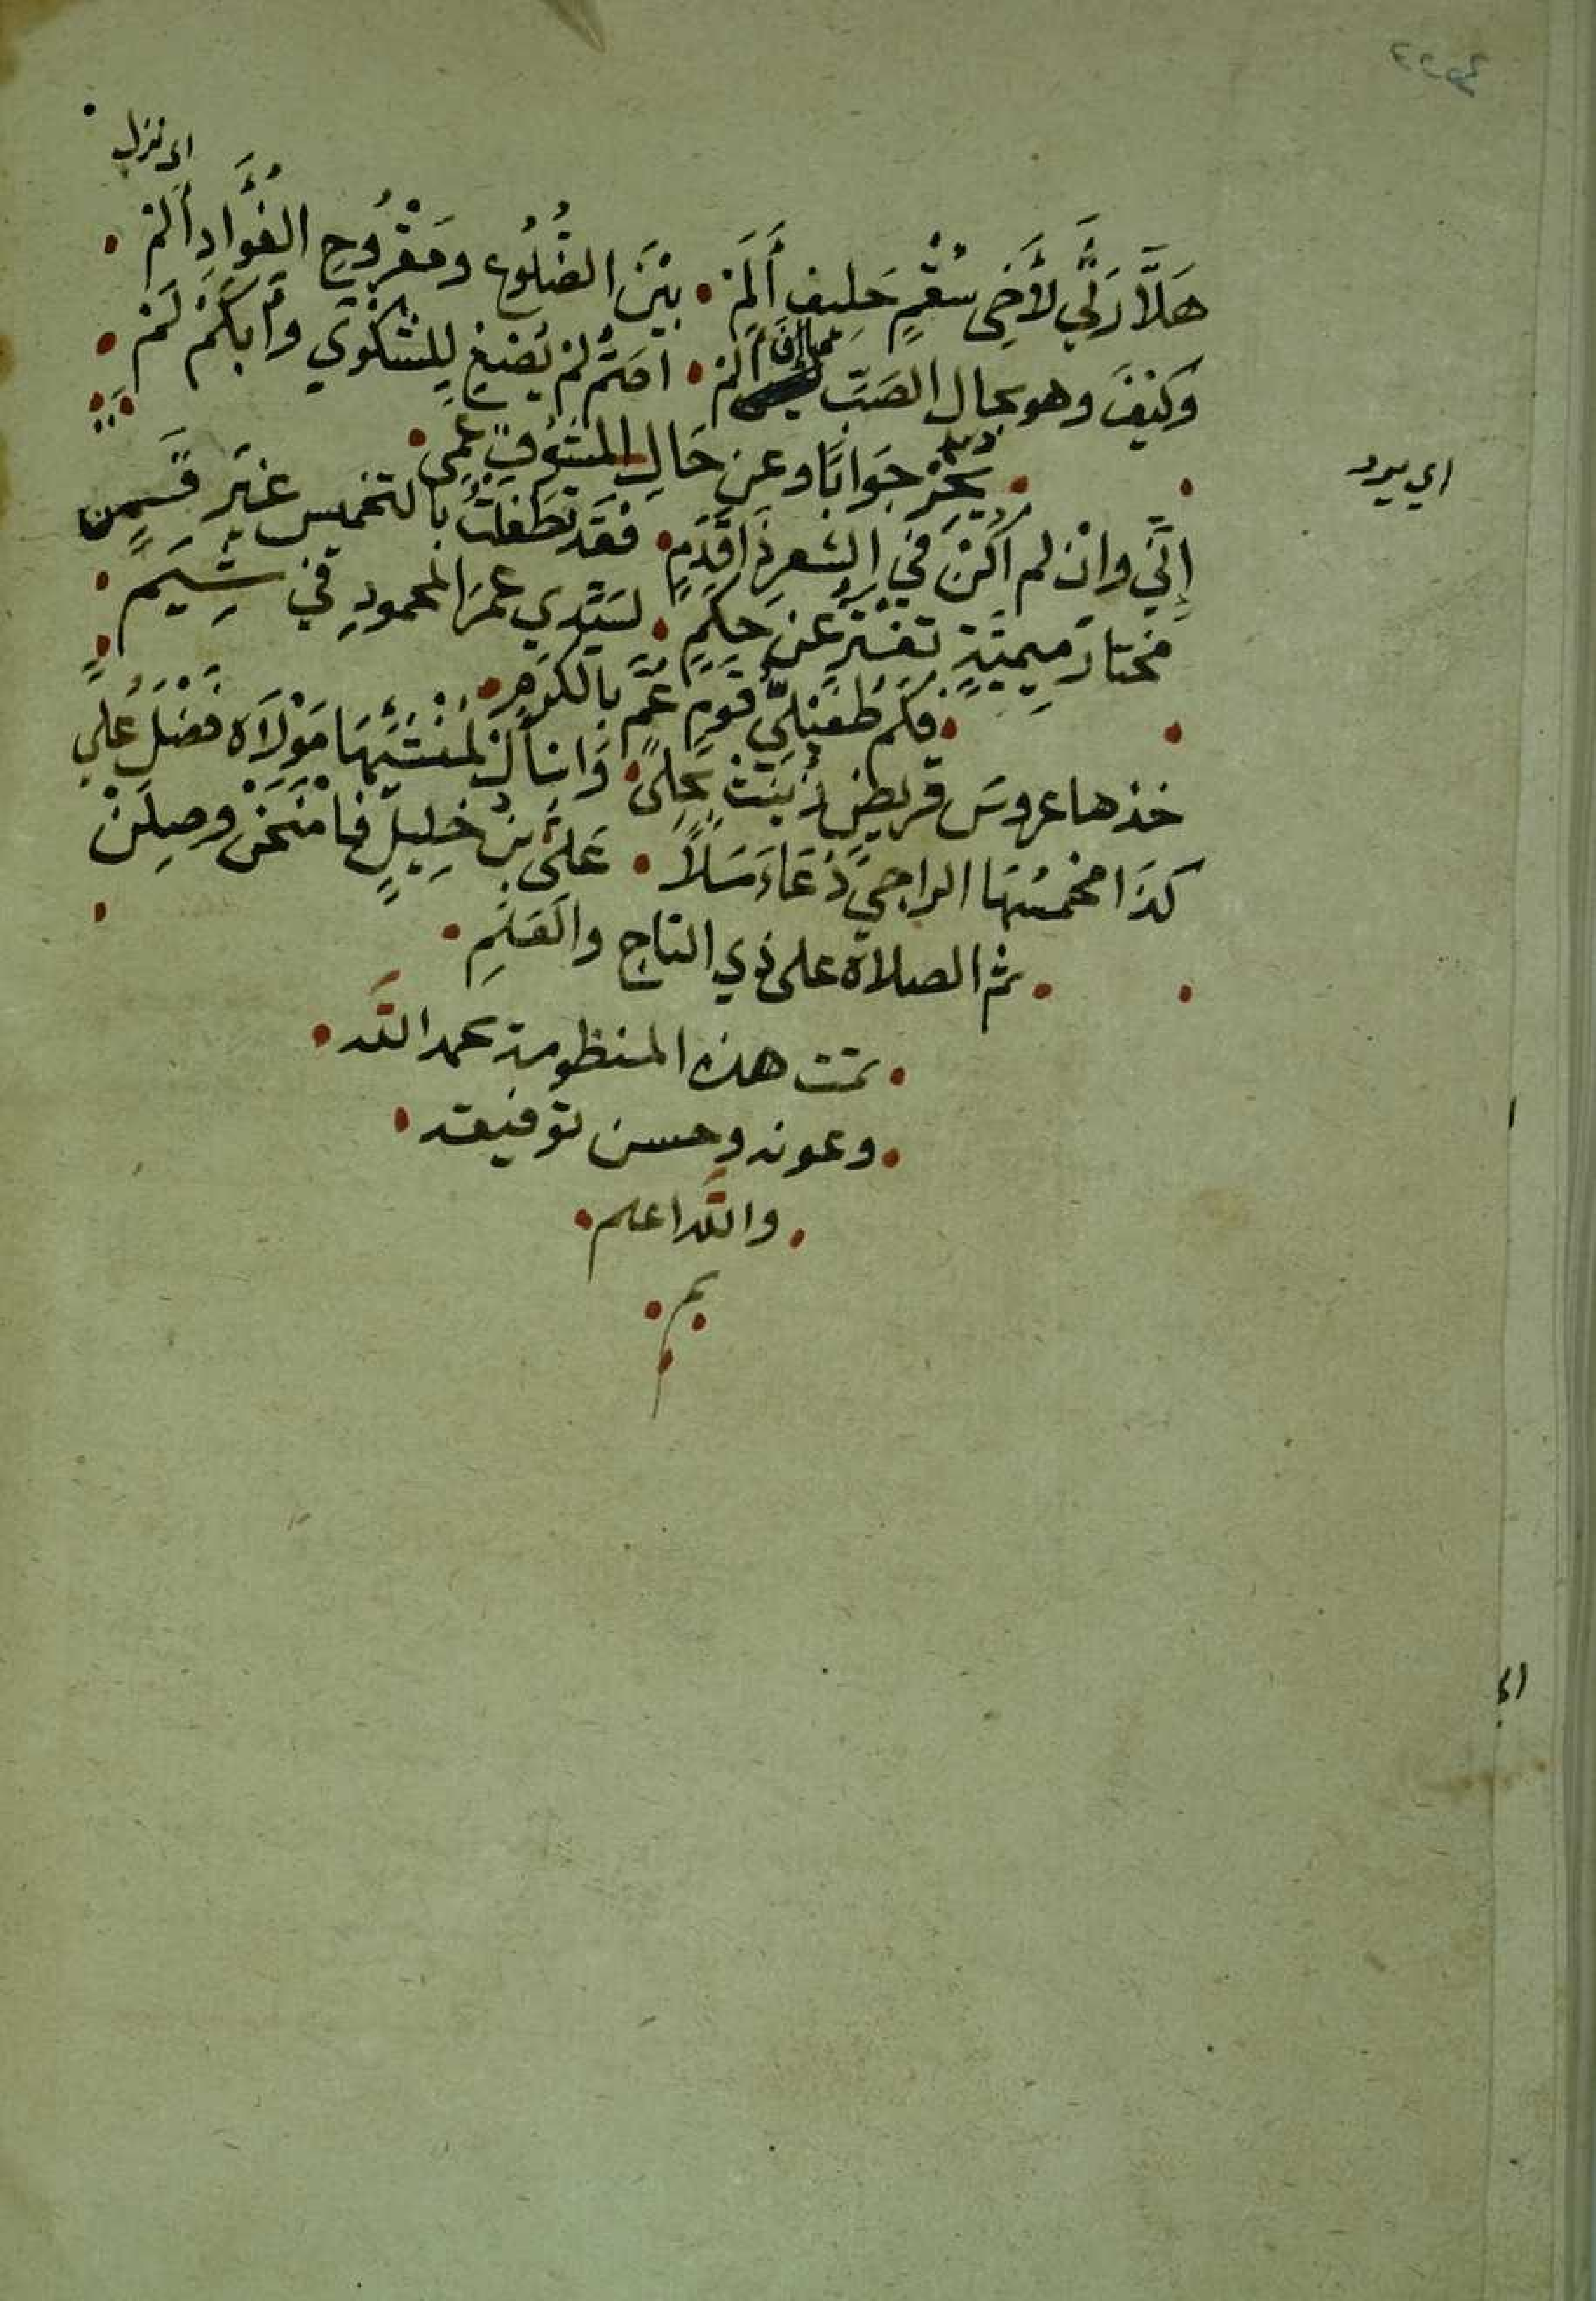 اي نزل
هَلَّا رَثَى لأَخِي سُقْمٍ حَلِيفِ أَلَمْ • بَيْنَ الضُّلُوعِ ومَقْرُوحِ الفُؤَادِ أَلَمْ •
وكَيْفَ وهو بحال الصَبّ الَمْ • اصَمُّ لمْ يُصْغِ لِلشَكْوَى وأبْكَمُ لَمْ •
• يُحِرْ جَوَابًا وعن حَالِ المَشُوقِ عَمِى •
اي يرد
إنّي وانْ لم أكُنْ في الشعرِ ذَا قَدَمٍ • فقَد تطَفلْتُ بالتخميس غيرَ قَمِن
مختارَ مِيميّةٍ تفتَرُّ عَن حِكَمٍ • لسَيّدي عمرَ المحمودِ في شِيَمٍ •
• فكَم طُفَيْليّ قومٍ عُمَّ بالكرمِ •
خذها عروسَ قريضٍ زُيّنَتْ بحِلًى • وَاسْأَلْ لمُنْشئِهَا مَوْلَاهُ فَضْلَ عُلًى
كذَا مخمسُهَا الراجي دُعَاءَ مَلَا • عَلىُّ بنُ خَلِيلٍ فامْنَحَنْ وصِلَنْ
• ثم الصلاةُ على ذي التاج والعَلَمِ •
• تمت هذه المنظومة بحمد الله •
• وعونه وحسن توفيقه •
• والله اعلم •
تم